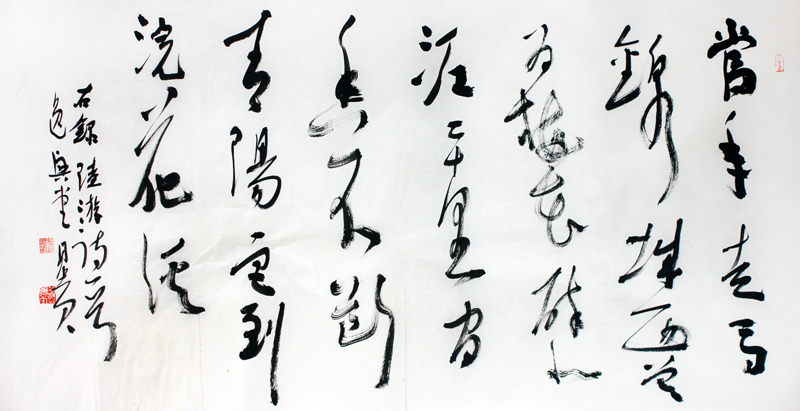 當年走馬
錦城西曾
為梅花醉似
泥二十里中
香不斷
青陽宮到
浣花溪
右錄陸游詩一首
逸興堂